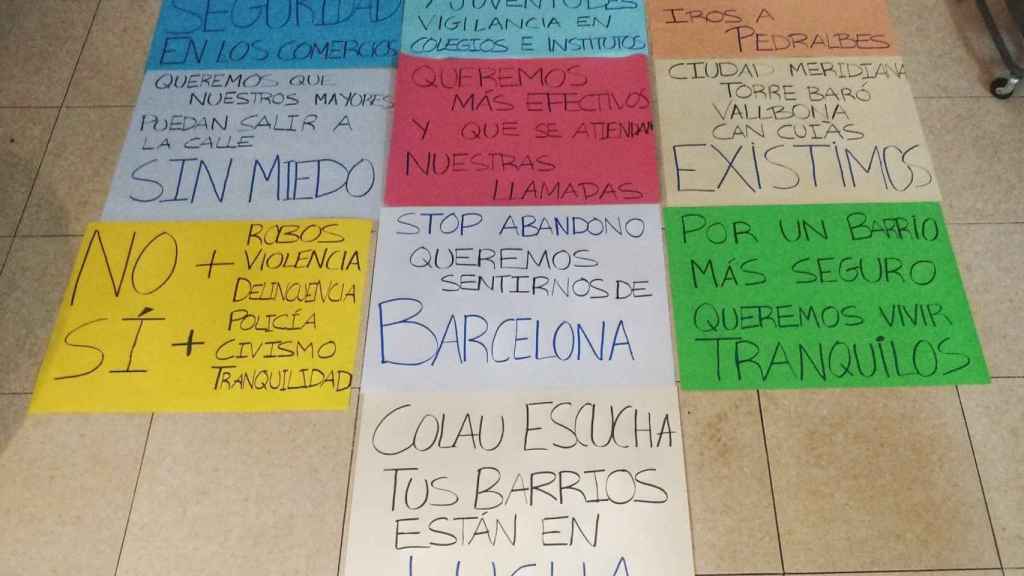 SEGURIDAD
EN LOS COMERCIOS
Y JUVENTUDES
VIGILANCIA EN
COLEGIOS E INSTITUTOS
IROS A
PEDRALBES
QUEREMOS QUE
NUESTROS MAYORES
PUEDAN SALIR A
LA CALLE
SIN MIEDO
QUEREMOS
MÁS EFECTIVOS
Y QUE SE ATIENDAN
NUESTRAS
LLAMADAS
CIUDAD MERIDIANA
TORRE BARÓ
VALLBONA
CAN CUIAS
EXISTIMOS
NO + ROBOS
VIOLENCIA
DELINCUENCIA
SÍ + POLICÍA
CIVISMO
TRANQUILIDAD
STOP ABANDONO
QUEREMOS
SENTIRNOS DE
BARCELONA
POR UN BARRIO
MÁS SEGURO
QUEREMOS VIVIR
TRANQUILOS
COLAU ESCUCHA
TUS BARRIOS
ESTÁN EN
LUCHA